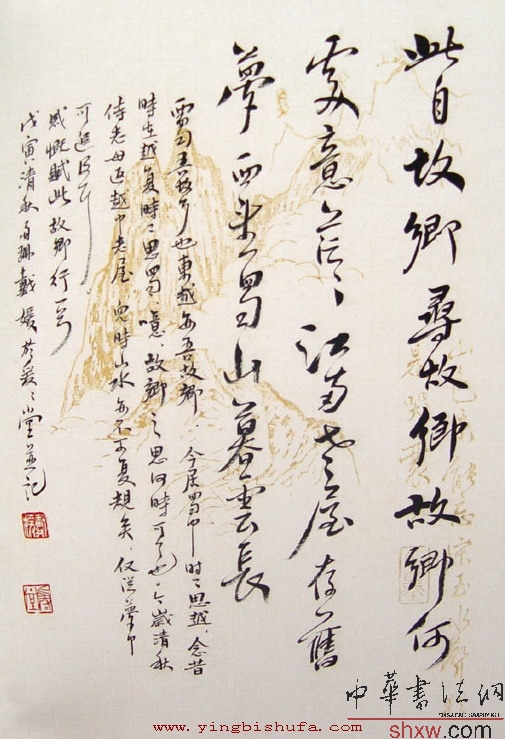 此日故鄉尋故鄉故鄉何
處意茫〻江南老屋存舊
夢西來蜀山暮雲長
西蜀吾故鄉也東越亦吾故鄉今居蜀中時〻思越念昔
時在越復時〻思蜀噫故鄉之思何時可了也今歲清秋
侍老母返越中老屋兒時山水亦不可復覩矣仅從夢中
可追
感慨賦此故鄉行一首
戊寅清秋戴媛於爰〻堂並記
中華書法網
www.yingbishufa.com
shxw.com